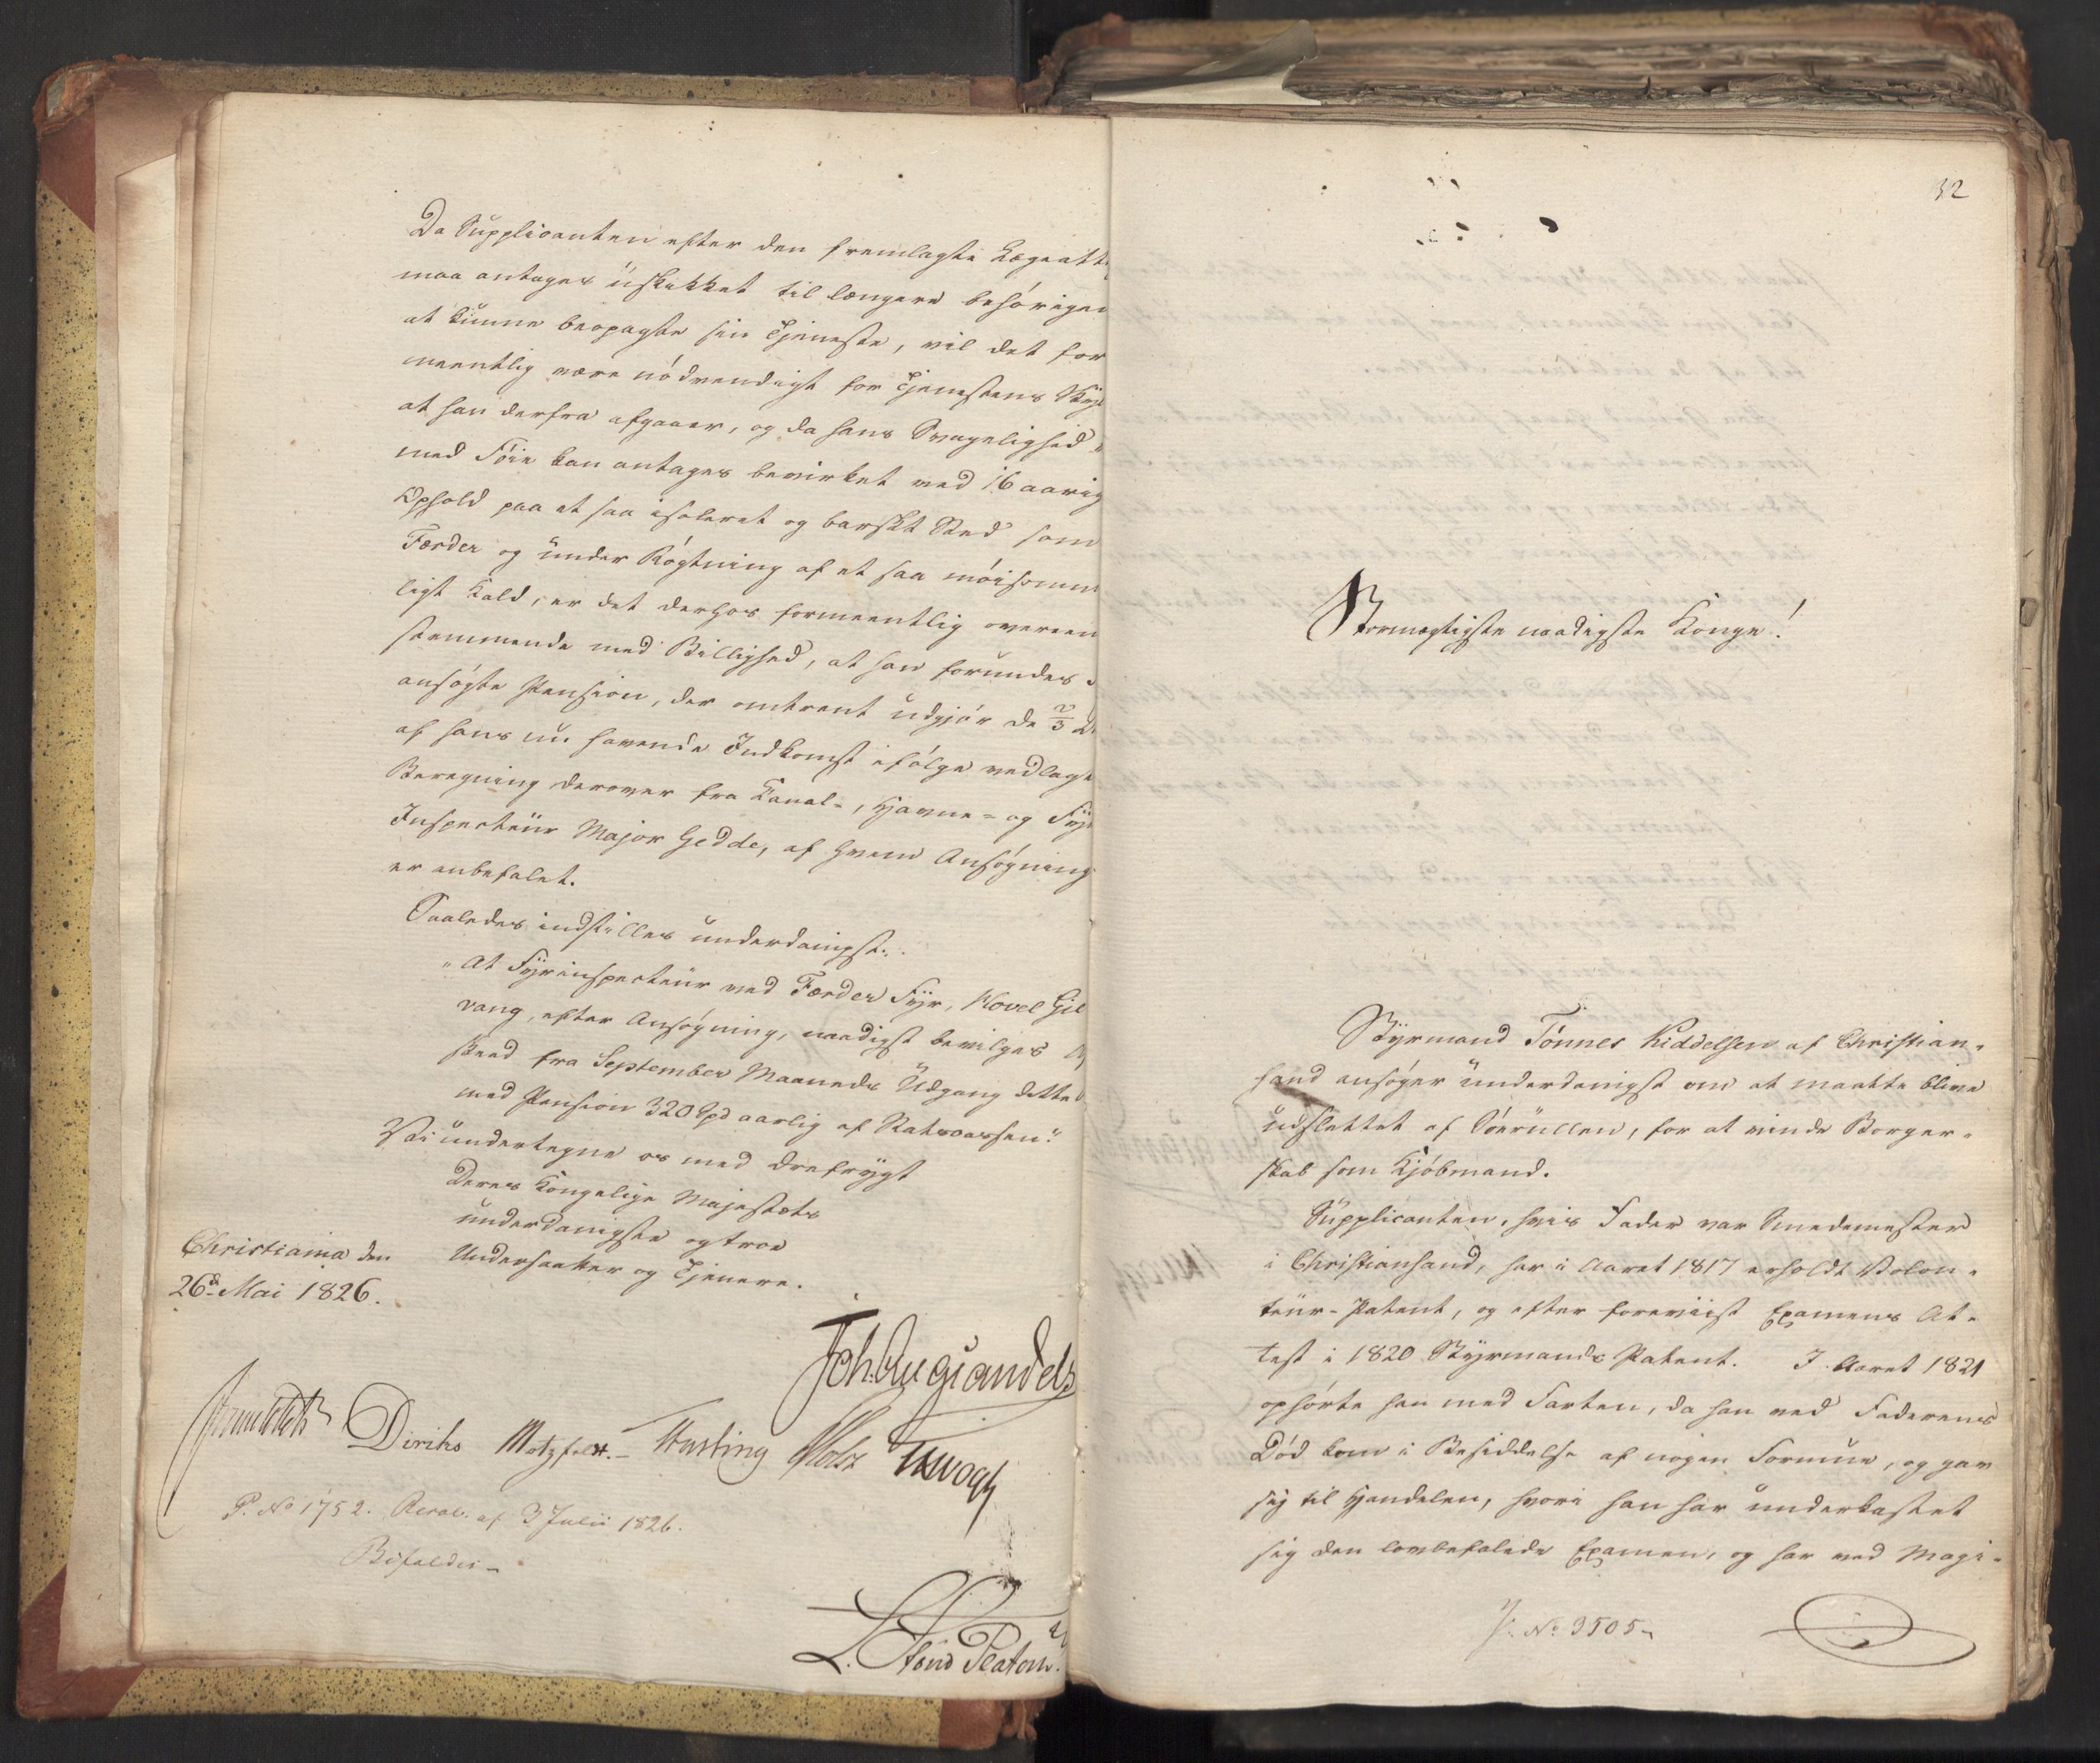 Da Supplicanten efter den fremlagte Lægeatte
maa antages uskikket til længere behørigen
at kunne bevogte sin Tjeneste, vil det for
meentlig være nødvendigt for Tjenestens Skyl
at han derfra afgaaer, og da hans Svagelighed
med Føie kan antages bevirket ved 16 aarig
Ophold paa et saa isoleret og barskt Sted som
Færder og under Røgtning af et saa møisomme
ligt Kald, er det derhos formeentlig overeen
stemmende med Billighed, at han forundes d
ansøgte Pension, der omtrent udgjør de 2/3 De
af hans nu havende Indkomst ifølge vedlagte
Beregning derover fra Canal-, Havne- og Fyr
Inspecteur Major Gedde, af hvem Ansøgning
er anbefalet.
Saaledes indstilles underdanigst:
"At Fyrinspecteur ved Færder Fyr, Hovel Gil
vang, efter Ansøgning, naadigst bevilges Af
sked fra September Maaneds Udgang dette
med Pension 320 Spd aarlig af Statscassen."
Vi undertegne os med Ærefrygt
Deres Kongelige Majestæts
underdanigste og troe
Undersaatter og Tjenere.
Christiania den
26de Mai 1826.
Joh. Aug Sandels
Diriks Motzfeldt. Holst TAVogt
P. No 1752. Resol. af 3 Julii 1826.
Bifaldes
L.
32
Stormægtigste naadigste Konge!
Styrmand Tønnes Kiddelsen af Christian-
sand ansøger underdanigst om at maatte blive
udslettet af Søerullen, for at vinde Borger-
skab som Kjøbmand.
Supplicanten, hvis Fader var Smedemester
i Christiansand, har i Aaret 1817 erholdt Volon-
teur-Patent, og efter foreviist Examens At-
test i 1820 Styrmands Patent. I Aaret 1821
ophørte han med Farten, da han ved Faderens
Død kom i Besiddelse af nogen Formue, og gav
sig til Handelen, hvori han har underkastet
sig den lovbefalede Examen, og har ved Magi-
P. No 3505